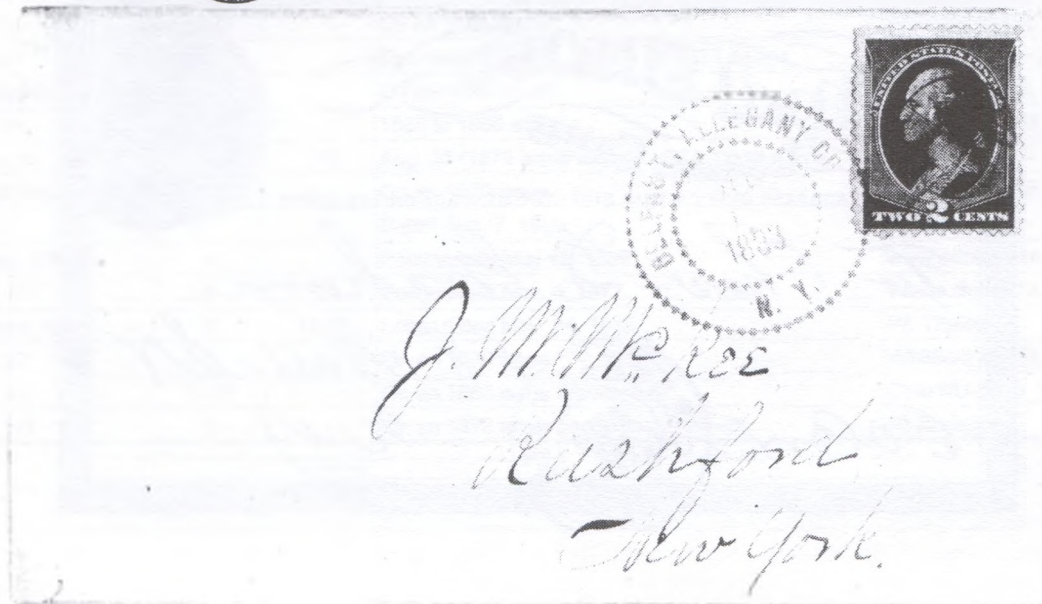 UNITED STATES POSTAGE
TWO 2 CENTS
BELFAST, ALLEGANY CO.
N. Y.
J. M. McKee
Rushford
New York.